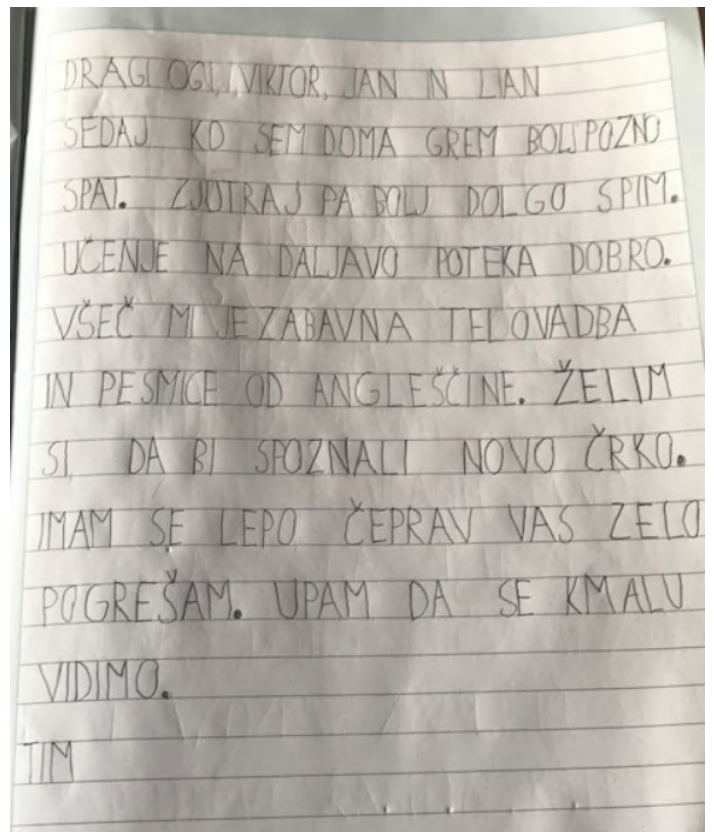 DRAGI OGI, VIKTOR, JAN IN LIAN
SEDAJ KO SEM DOMA GREM BOLJ POZNO
SPAT. ZJUTRAJ PA BOLJ DOLGO SPIM.
UČENJE NA DALJAVO POTEKA DOBRO.
VŠEČ MI JE ZABAVNA TELOVADBA
IN PESMICE OD ANGLEŠČINE. ŽELIM
SI, DA BI SPOZNALI NOVO ČRKO.
IMAM SE LEPO ČEPRAV VAS ZELO
POGREŠAM. UPAM DA SE KMALU
VIDIMO.
TIM